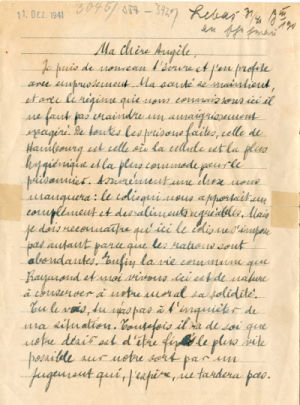 11. DEZ. 1941
Lebas
Ma Chère Angèle,
Je puis de nouveau t'écrire et j'en profite
avec empressement. Ma santé se maintient,
et avec le régime que nous connaissons ici il
ne faut pas craindre un amaigrissement
exagéré. De toutes les prisons faites, celle de
Hambourg est celle où la cellule est la plus
hygiénique et la plus commode pour le
prisonnier. Assurément une chose nous
manquera : le colis qui nous apportait un
complément et des aliments agréables. Mais
je dois reconnaître qu'ici le colis ne s'impose
pas autant parce que les rations sont
abondantes. Enfin la vie commune que
Raymond et moi vivons ici est de nature
à conserver à notre moral sa solidité.
Tu le vois, tu n'as pas à t'inquiéter de
ma situation. Toutefois il va de soi que
notre désir est d'être fixé le plus vite
possible sur notre sort par un
jugement qui, j'espère, ne tardera pas.